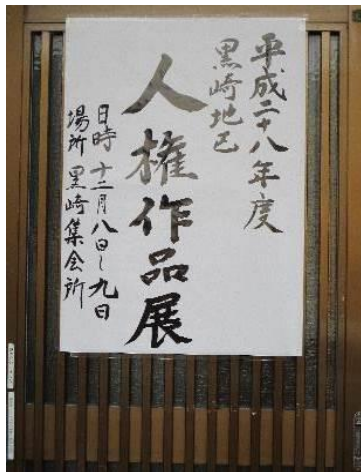 平成二十八年度
黒崎地区
人権作品展
日時 十二月八日～九日
場所 黒崎集会所